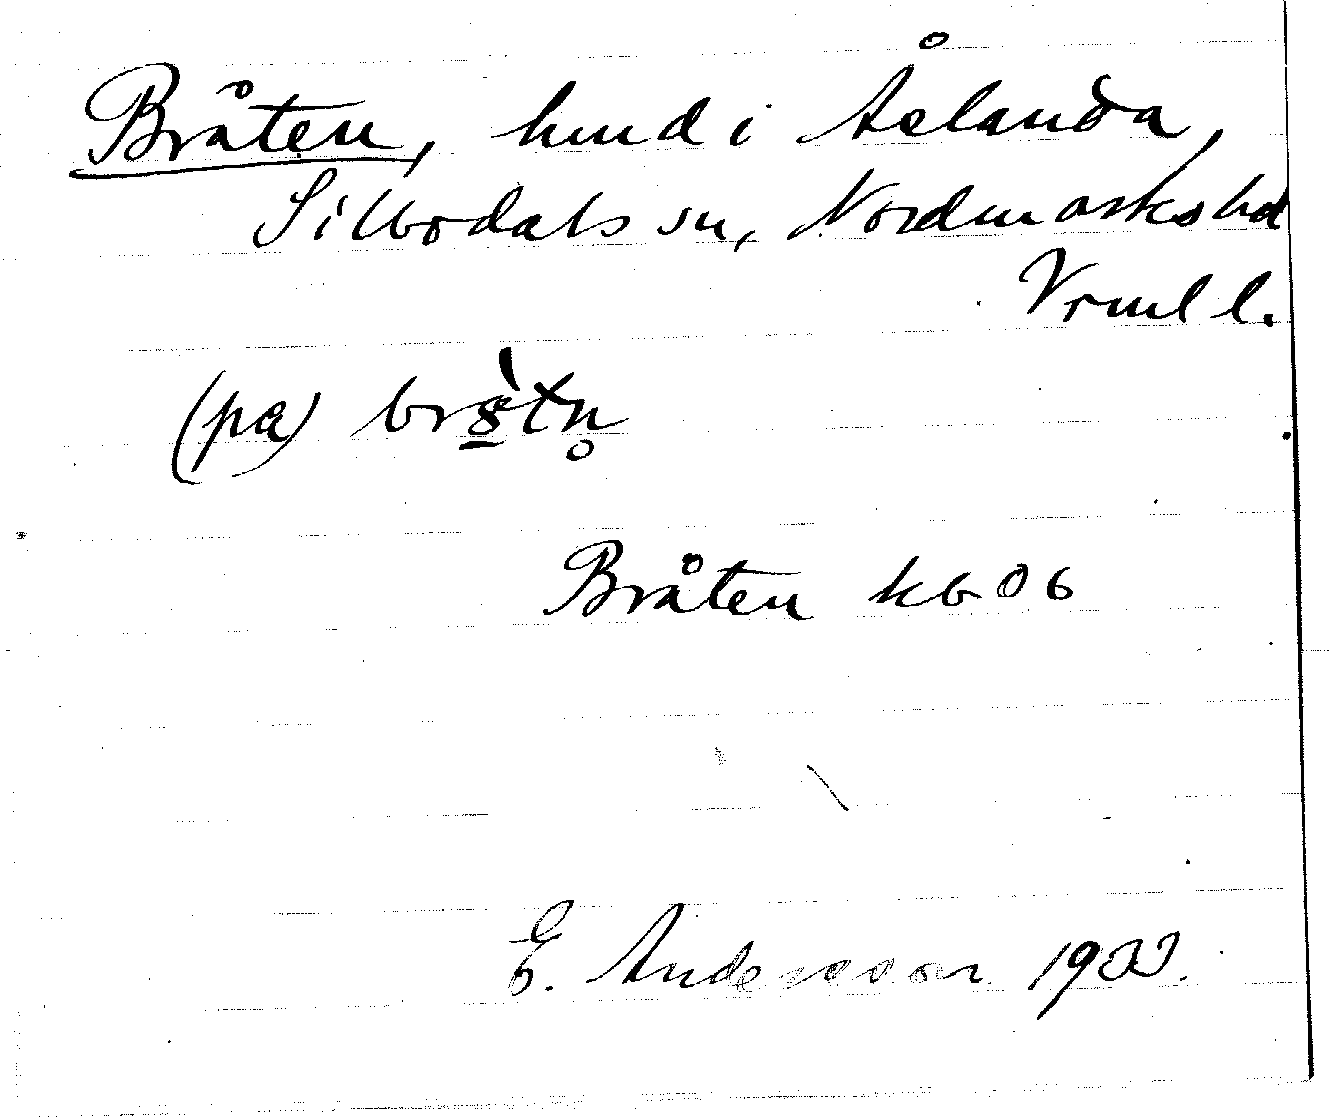 Bråten, hmd i Åslanda,
Silbodals sn, Nordmarks hd
Vrml l.
(pa)
Bråten kb 06
E. Andersson 1933.